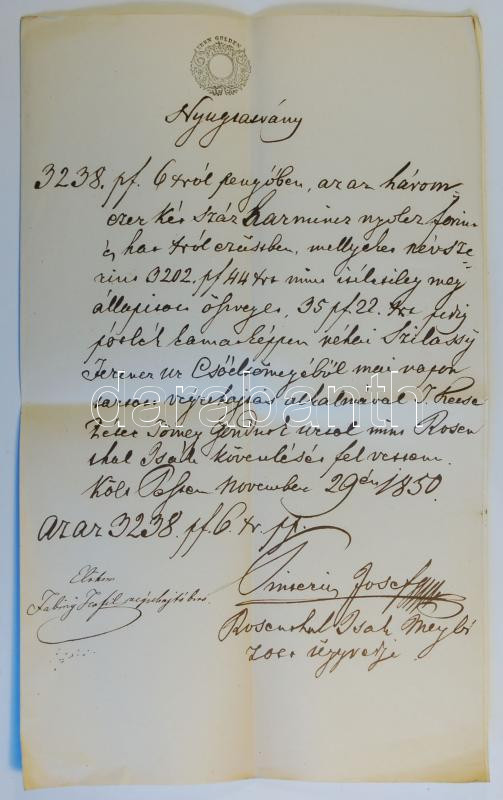 ZEHN GULDEN
Nyugtatvány
3238. pf. 6 xról pengőben, az az három
ezer két száz harmincz nyolcz forint
és hat xról ezüstben, mellyeket névsze
rint 3202. pf 44 xrt mint itéletileg meg
állapitott összveget, 35 pf. 22. xrt pedig
pótlék kamatképpen néhai Szilassy
Ferencz Ur Csődtömegéből mai napon
tartott végrehajtás alkalmával
Péter Tömeg Gondnok urtol mint Rosen
thal Isák követelését fel vettem.
Költ Pesten November 29én 1850.
az az 3238. pf. 6. xr. pp.
darabanth
Előttem
végrehajtó biró
József
Rosenthal Isák Megbi
zott ügyvédje